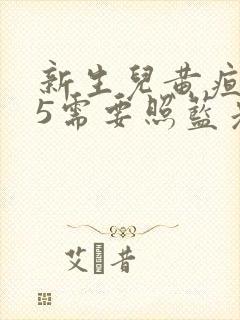 新生兒黃疸
5需要照藍
艾 昔